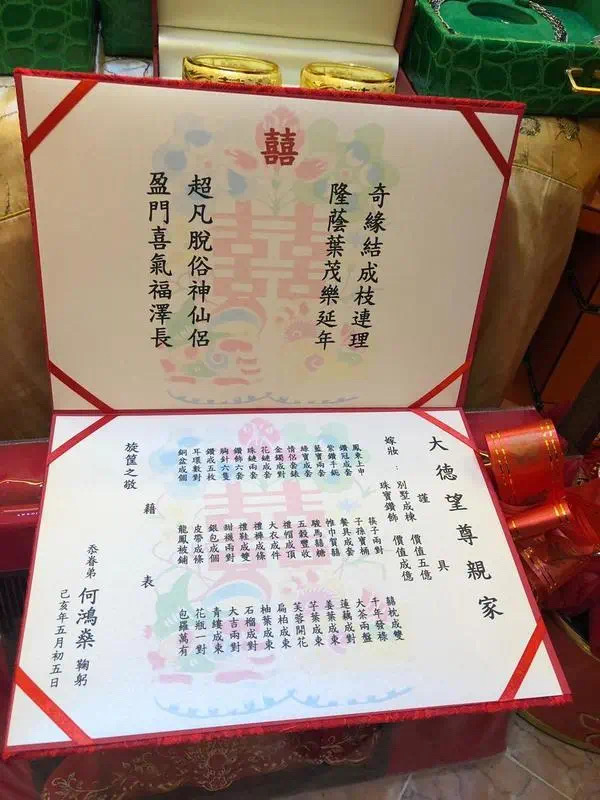 囍
奇緣結成枝連理
隆蔭葉茂樂延年
超凡脫俗神仙侶
盈門喜氣福澤長
大德望尊親家
謹具
嫁妝：別墅成棟 價值五億
珠寶鑽飾 價值成億
鳳東上申
鑽冠成套
紫鑽手鈪
藍寶兩套
綠寶成套
情侶套錶
金鐲成對
花鏈成套
珠鏈兩套
鑽飾六套
胸針六隻
鑽戒五枚
耳環數對
銅盆成個
筷子兩對
子孫寶桶
餐具成套
帷巾賀囍
駿馬囍糖
五穀豐收
禮帽成頂
大衣成件
禮褲成條
禮鞋成雙
甜襪兩對
銀包成個
皮帶成條
龍鳳被鋪
囍枕成雙
千年發祿
大茶兩盤
蓮藕成對
姜葉成束
芊葉成束
芙蓉開花
扁柏成束
柚葉成束
石榴成對
大吉兩對
青縷成束
花瓶一對
包羅萬有
籍表
旋篚之敬
忝眷弟 何鴻燊 鞠躬
己亥年五月初五日